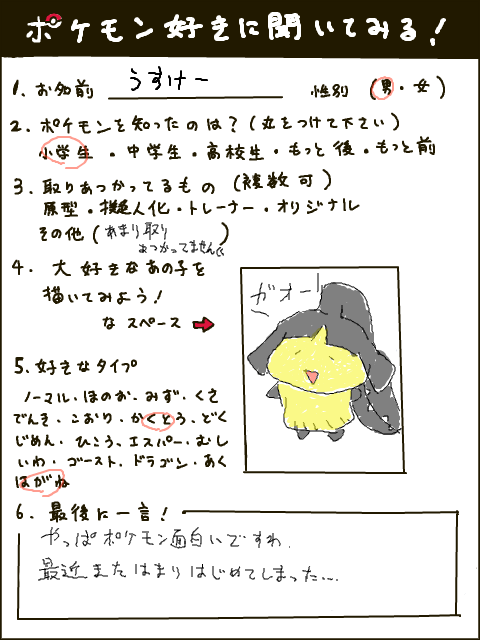 ポケモン好きに聞いてみる!
1. お名前 うすけー 性別 (男・女)
2. ポケモンを知ったのは?(丸をつけて下さい)
小学生・中学生・高校生・もっと後・もっと前
3. 取りあつかってるもの (複数可)
原型・擬人化・トレーナー・オリジナル
その他(あまり取り
あつかってません)
4. 大好きなあの子を
描いてみよう!
な スペース
ガオー!
5. 好きなタイプ
ノーマル・ほのお・みず・くさ
でんき・こおり・かくとう・どく
じめん・ひこう・エスパー・むし
いわ・ゴースト・ドラゴン・あく
はがね
6. 最後に一言!
やっぱポケモン面白いですわ.
最近またはまりはじめてしまった....